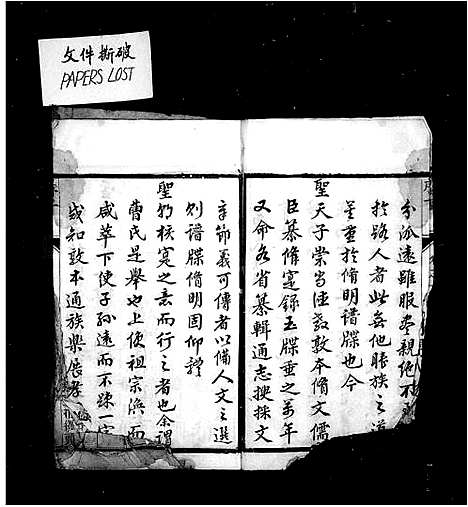 文件撕破
PAPERS LOST
分派遠雖服盡親絕不
於路人者此無他睦族之道
莫重於脩明譜牒也今
聖天子崇尚經教敦本脩文儒
臣纂脩寔錄玉牒垂之萬年
又命各省纂輯通志搜採文
章節義可傳者以備人文之選
則譜牒脩明固仰體
聖朝核寔之意而行之者也余謂
曹氏是舉也上使祖宗渙而
咸萃下使子孫遠而不疎一宗
咸知敦本通族樂展孝